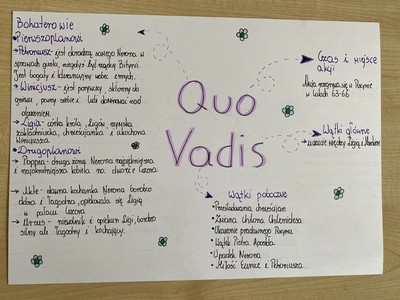 Bohaterowie
• Pierwszoplanowi
→ Petroniusz - jest doradcą samego Nerona w
sprawach gustu, niegdyś był rządcą Bitynii.
Jest bogaty i
→ Winicjusz - jest porywczy, skłonny do
gniewu, pewny siebie i lubi dominować nad
otoczeniem.
→ Ligia - córka króla Ligów, rzymska
zakładniczka, chrześcijanka i ukochana
Winicjusza
• Drugoplanowi
→ Poppea - druga żona Nerona najpiękniejsza
i najokrutniejsza kobieta na dworze Cezara
→ Akte - dawna kochanka Nerona bardzo
dobra i łagodna, opiekowała się Ligią
w pałacu Cezara.
→ Ursus - niewolnik i opiekun Ligi, bardzo
silny ale łagodny i kochający.
Quo
Vadis
Czas i miejsce
akcji
Akcja rozgrywa się w Rzymie
w latach 63-66
Wątki główne
uczucie między Ligią a
Wątki poboczne
• Prześladowania chrześcijan
• Zmiana Chilona Chilonidesa
• Ukazanie prawdziwego Rzymu
• Wątek Piotra Apostoła
• Upadek Nerona
• Miłość Eunice i Petroniusza